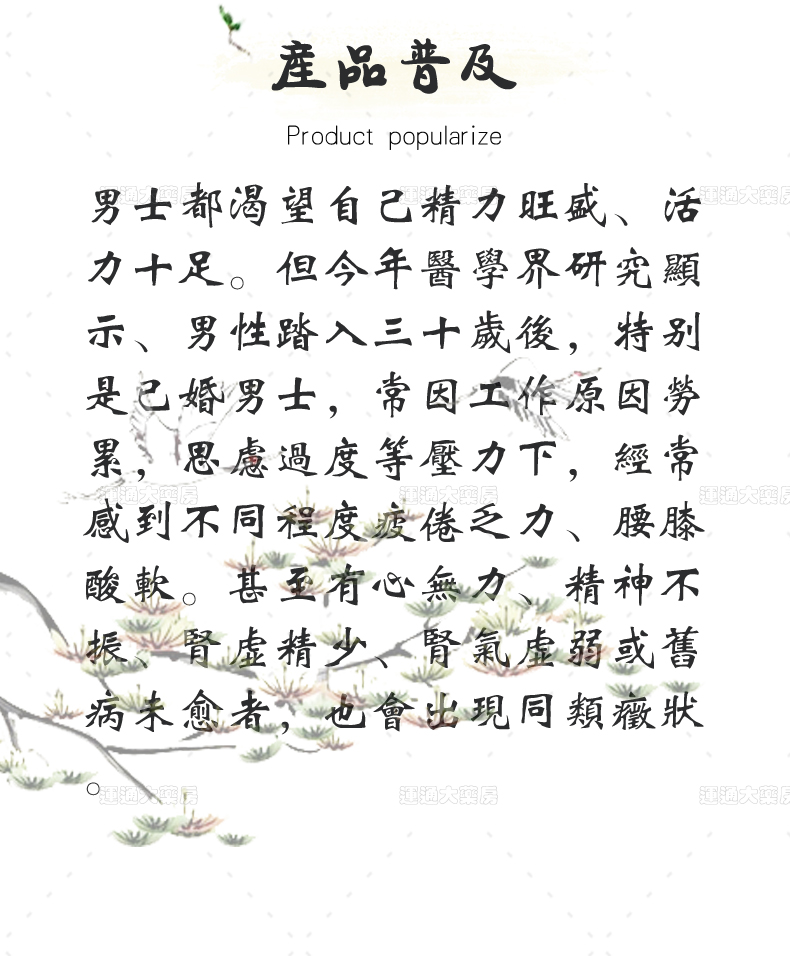 産品普及
Product popularize
男士都渴望自己精力旺盛、活
力十足。但今年醫學界研究顯
示、男性踏入三十歲後，特别
是己婚男士，常因工作原因勞
累，思慮過度等壓力下，經常
感到不同程度疲倦乏力、腰膝
酸軟。甚至有心無力、精神不
振、腎虛精少、腎氣虛弱或舊
病未愈者，也會出現同類癥狀
。
運通大藥房 運通大藥房 運通大藥房
運通大藥房 運通大藥房 運通大藥房
運通大藥房 運通大藥房 運通大藥房